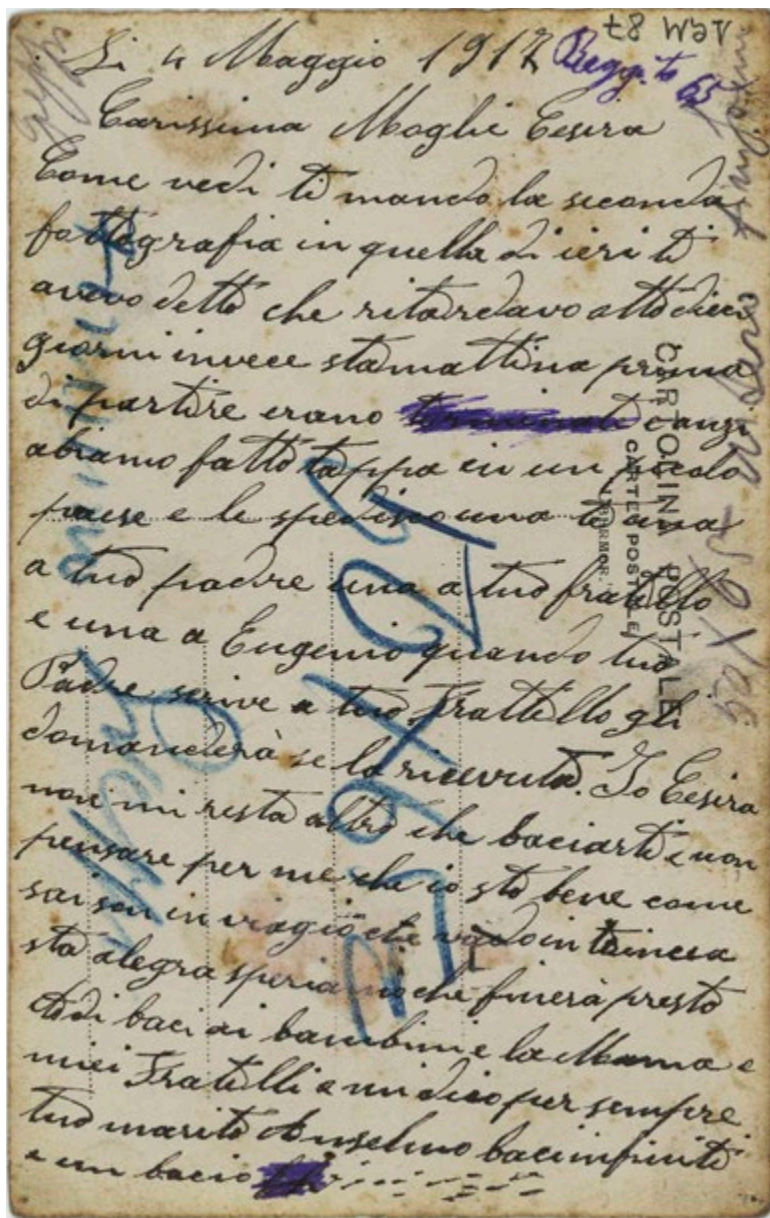 Li 4 Maggio 1917
Carissima Moglie Cesira
Come vedi ti mando la seconda
fottografia in quella di ieri ti
avevo detto che ritardavo otto dieci
giorni invece stamattina prima
di partire erano
abiamo fatto tappa in un picolo
paese e le spedisco una te una
a tuo padre una a tuo fratello
e una a Eugenio quando tuo
Padre scrive a tuo Frattello gli
domanderà se la ricevuta. Io Cesira
non mi resta altro che baciarti e non
pensare per me che io sto bene come
sai son in viagio che vado in trincea
sta alegra speriamo che finerà presto
di baci ai bambini e la Mama e
miei Fratelli e mi dico per sempre
tuo marito Anselmo baci infiniti
e un bacio
CARTOLINA POSTALE
(CARTE POSTALE)